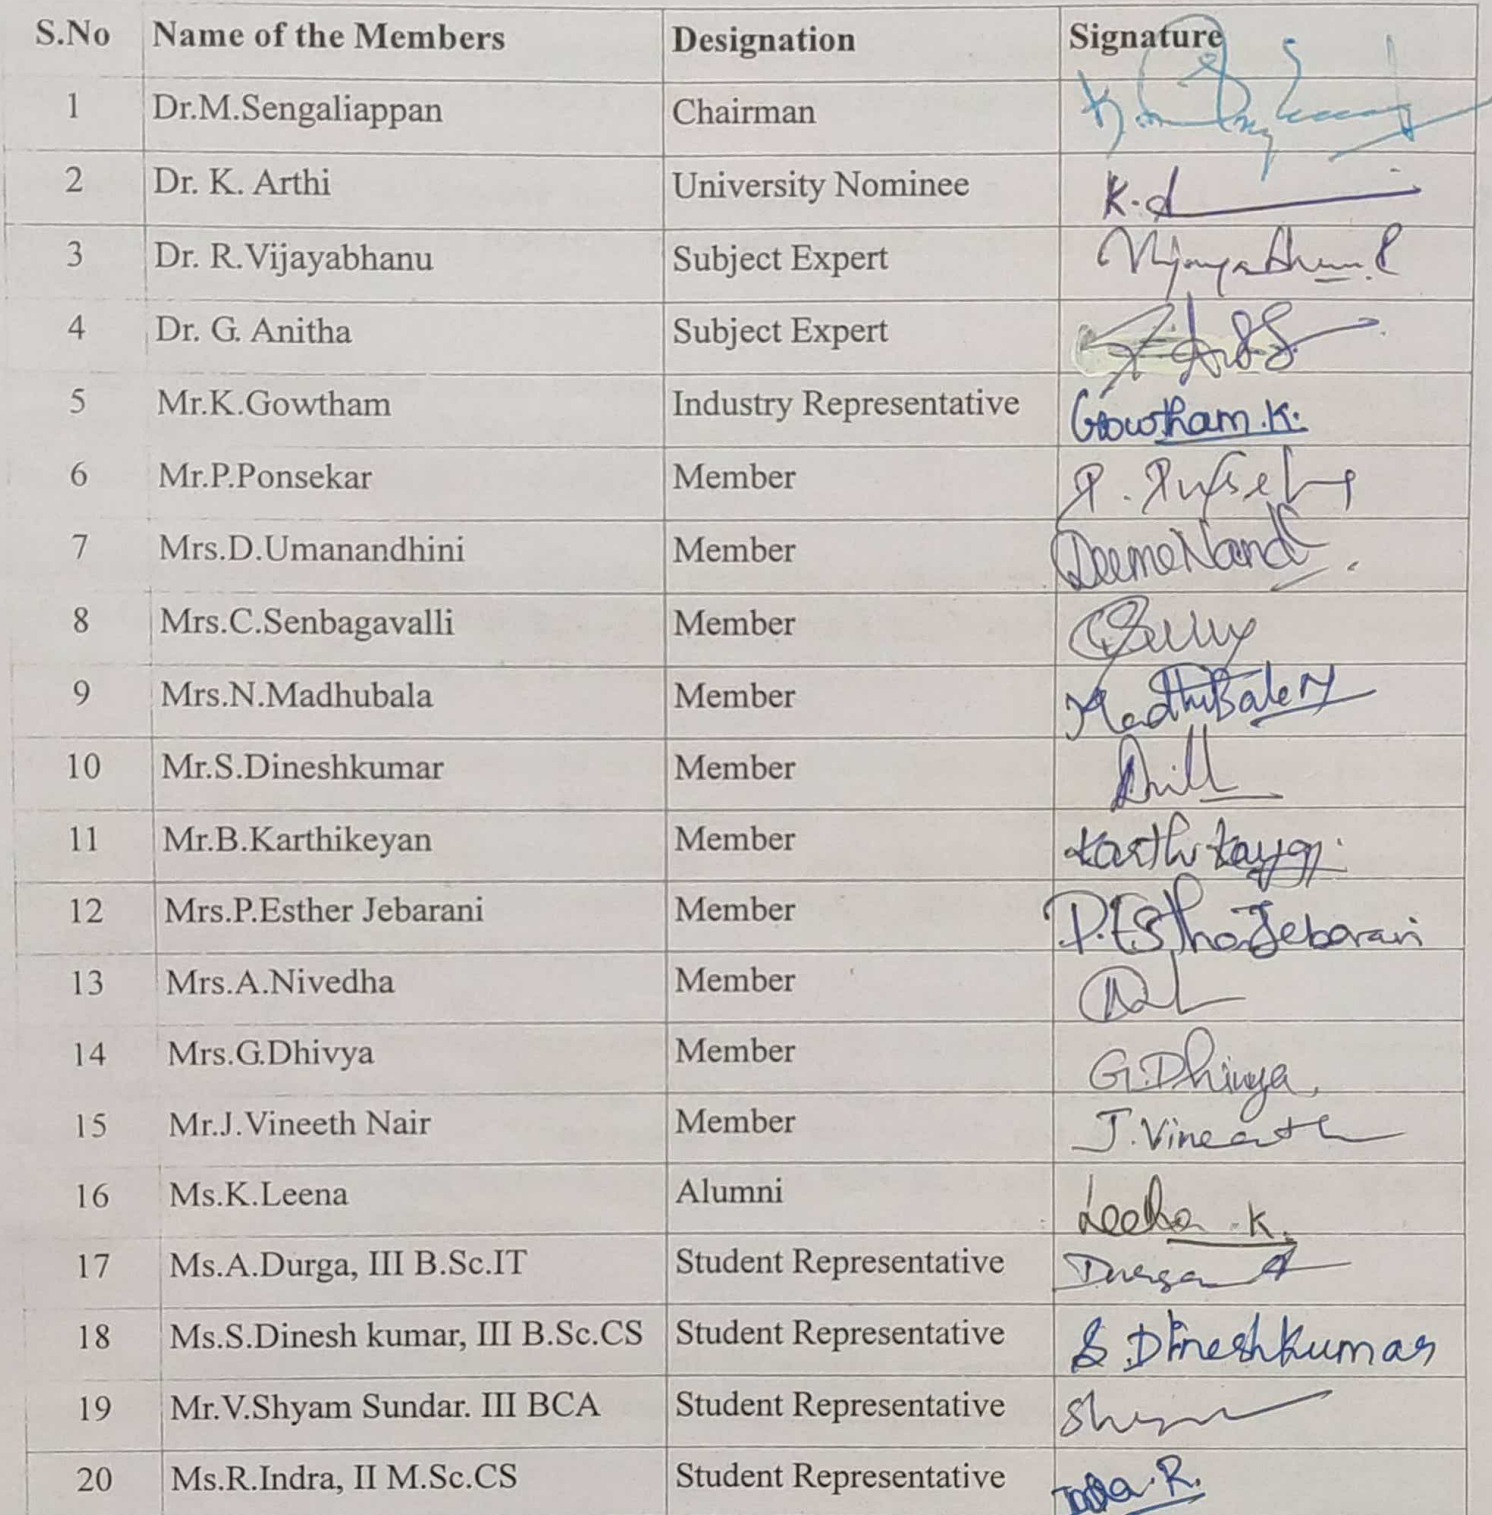 S.No Name of the Members Designation Signature
1 Dr.M.Sengaliappan Chairman
2 Dr. K. Arthi University Nominee
3 Dr. R.Vijayabhanu Subject Expert
4 Dr. G. Anitha Subject Expert
5 Mr.K.Gowtham Industry Representative Gowtham.K.
6 Mr.P.Ponsekar Member
7 Mrs.D.Umanandhini Member
8 Mrs.C.Senbagavalli Member
9 Mrs.N.Madhubala Member
10 Mr.S.Dineshkumar Member
11 Mr.B.Karthikeyan Member
12 Mrs.P.Esther Jebarani Member
13 Mrs.A.Nivedha Member
14 Mrs.G.Dhivya Member G.Dhivya
15 Mr.J.Vineeth Nair Member J.Vineeth
16 Ms.K.Leena Alumni Leena .K.
17 Ms.A.Durga, III B.Sc.IT Student Representative Durga A
18 Ms.S.Dinesh kumar, III B.Sc.CS Student Representative S.Dineshkumar
19 Mr.V.Shyam Sundar. III BCA Student Representative
20 Ms.R.Indra, II M.Sc.CS Student Representative Indra.R.